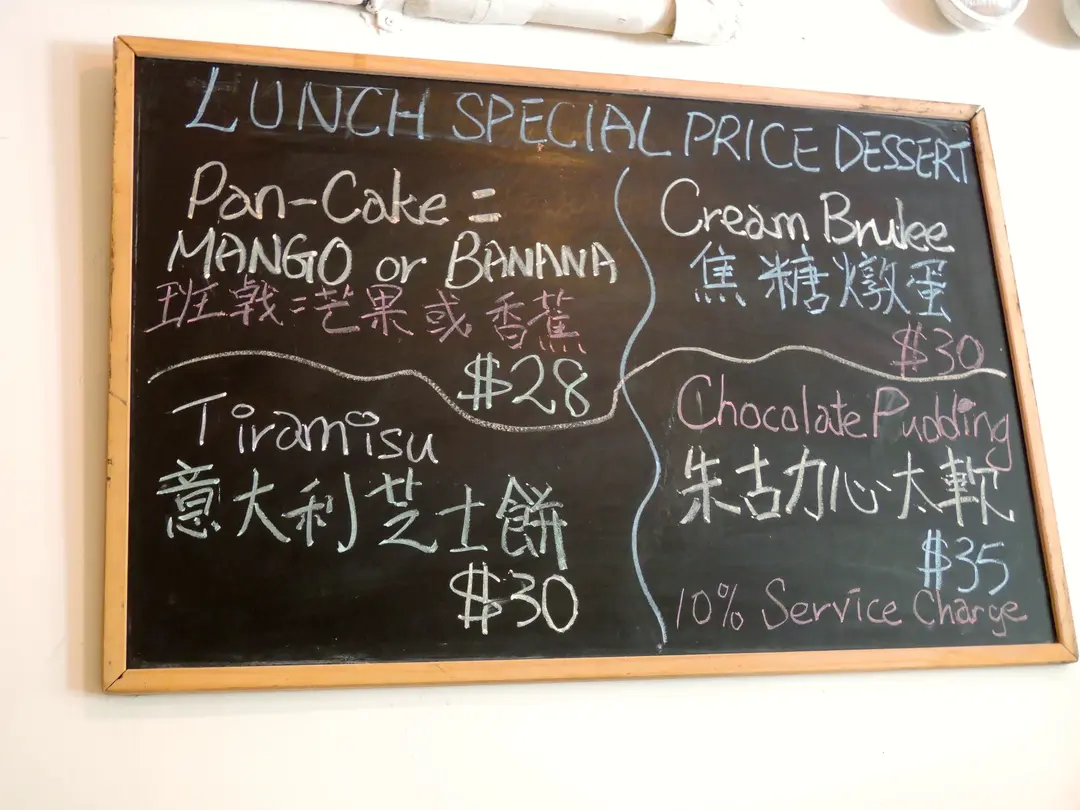 LUNCH SPECIAL PRICE DESSERT
Pan-Cake =
MANGO or BANANA
班戟=芒果或香蕉
$28
Cream Brulee
焦糖燉蛋
$30
Tiramisu
意大利芝士餅
$30
Chocolate Pudding
朱古力心太軟
$35
10% Service Charge